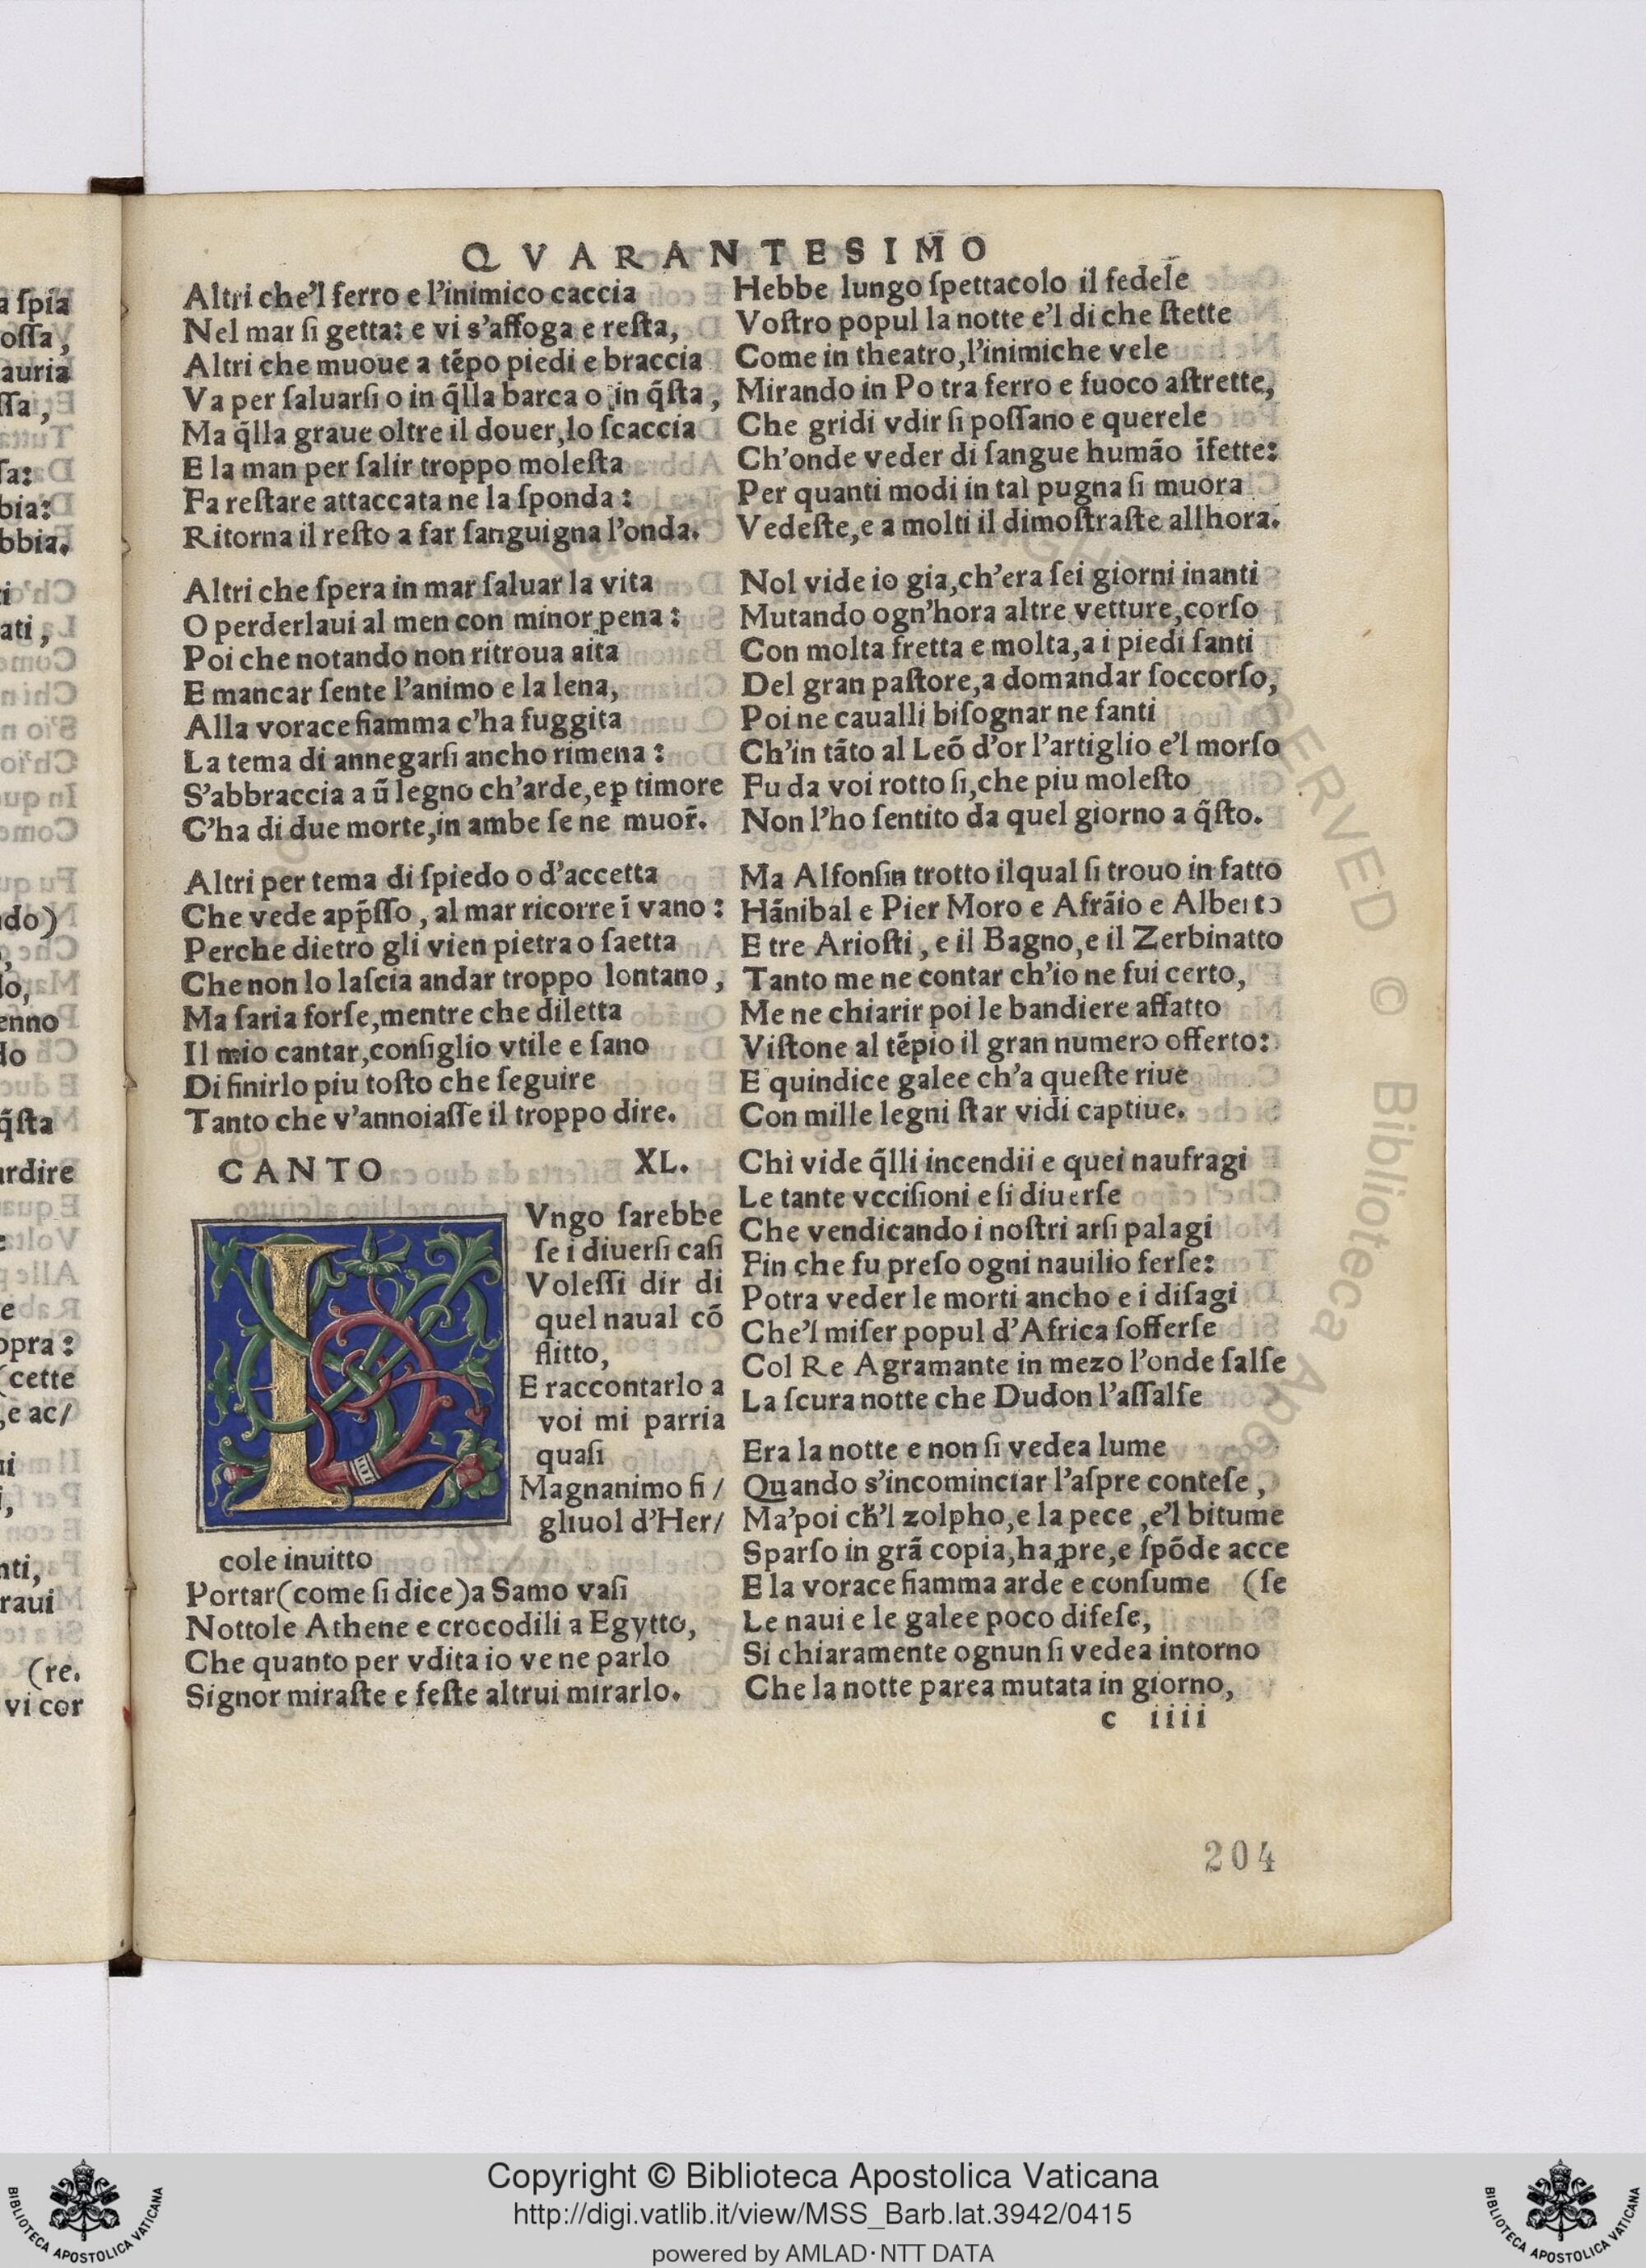 QVARANTESIMO
Altri che'l ferro e l'inimico caccia
Nel mar ſi getta: e vi s'affoga e reſta,
Altri che muoue a tẽpo piedi e braccia
Va per ſaluarſi o in q̃lla barca o in q̃ſta,
Ma q̃lla graue oltre il douer, lo ſcaccia
E la man per ſalir troppo moleſta
Fa reſtare attaccata ne la ſponda:
Ritorna il reſto a far ſanguigna l'onda.
Altri che ſpera in mar ſaluar la vita
O perderlaui al men con minor pena:
Poi che notando non ritroua aita
E mancar ſente l'animo e la lena,
Alla vorace fiamma c'ha fuggita
La tema di annegarſi ancho rimena:
S'abbraccia a ũ legno ch'arde, e ꝑ timore
C'ha di due morte, in ambe ſe ne muor̃.
Altri per tema di ſpiedo o d'accetta
Che vede app̃ſſo, al mar ricorre ĩ vano:
Perche dietro gli vien pietra o ſaetta
Che non lo laſcia andar troppo lontano,
Ma ſaria forſe, mentre che diletta
Il mio cantar, conſiglio vtile e ſano
Di finirlo piu toſto che ſeguire
Tanto che v'annoiaſſe il troppo dire.
CANTO XL.
L
Vngo ſarebbe
ſe i diuerſi caſi
Voleſſi dir di
quel naual cõ
flitto,
E raccontarlo a
voi mi parria
quaſi
Magnanimo fi/
gliuol d'Her/
cole inuitto
Portar (come ſi dice) a Samo vaſi
Nottole Athene e crocodili a Egytto,
Che quanto per vdita io ve ne parlo
Signor miraſte e feſte altrui mirarlo.
Hebbe lungo ſpettacolo il fedele
Voſtro popul la notte e'l di che ſtette
Come in theatro, l'inimiche vele
Mirando in Po tra ferro e fuoco aſtrette,
Che gridi vdir ſi poſſano e querele
Ch'onde veder di ſangue humão ĩfette:
Per quanti modi in tal pugna ſi muora
Vedeſte, e a molti il dimoſtraſte allhora.
Nol vide io gia, ch'era ſei giorni inanti
Mutando ogn'hora altre vetture, corſo
Con molta fretta e molta, a i piedi ſanti
Del gran paſtore, a domandar ſoccorſo,
Poi ne caualli biſognar ne fanti
Ch'in tãto al Leõ d'or l'artiglio e'l morſo
Fu da voi rotto ſi, che piu moleſto
Non l'ho ſentito da quel giorno a q̃ſto.
Ma Alfonſin trotto ilqual ſi trouo in fatto
Hãnibal e Pier Moro e Afrãio e Alberto
E tre Arioſti, e il Bagno, e il Zerbinatto
Tanto me ne contar ch'io ne fui certo,
Me ne chiarir poi le bandiere affatto
Viſtone al tẽpio il gran numero offerto:
E quindice galee ch'a queſte riue
Con mille legni ſtar vidi captiue.
Chi vide q̃lli incendii e quei naufragi
Le tante vcciſioni e ſi diuerſe
Che vendicando i noſtri arſi palagi
Fin che fu preſo ogni nauilio ferſe:
Potra veder le morti ancho e i diſagi
Che'l miſer popul d'Africa ſofferſe
Col Re Agramante in mezo l'onde ſalſe
La ſcura notte che Dudon l'aſſalſe
Era la notte e non ſi vedea lume
Quando s'incominciar l'aſpre conteſe,
Ma'poi ch̃'l zolpho, e la pece, e'l bitume
Sparſo in grã copia, ha ꝓre, e ſpõde acce
E la vorace fiamma arde e conſume (ſe
Le naui e le galee poco difeſe,
Si chiaramente ognun ſi vedea intorno
Che la notte parea mutata in giorno,
c iiii
204
a ſpia
oſſa,
auria
ſſa,
ſa:
bia:
bbia.
ti
ati,
ndo)
lo,
enno
do
q̃ſta
ardire
e
opra:
(cette
,e ac/
ui
i,
nti,
raui
(re.
vi cor
Copyright © Biblioteca Apostolica Vaticana
http://digi.vatlib.it/view/MSS_Barb.lat.3942/0415
powered by AMLAD·NTT DATA
BIBLIOTECA APOSTOLICA VATICANA
BIBLIOTECA APOSTOLICA VATICANA